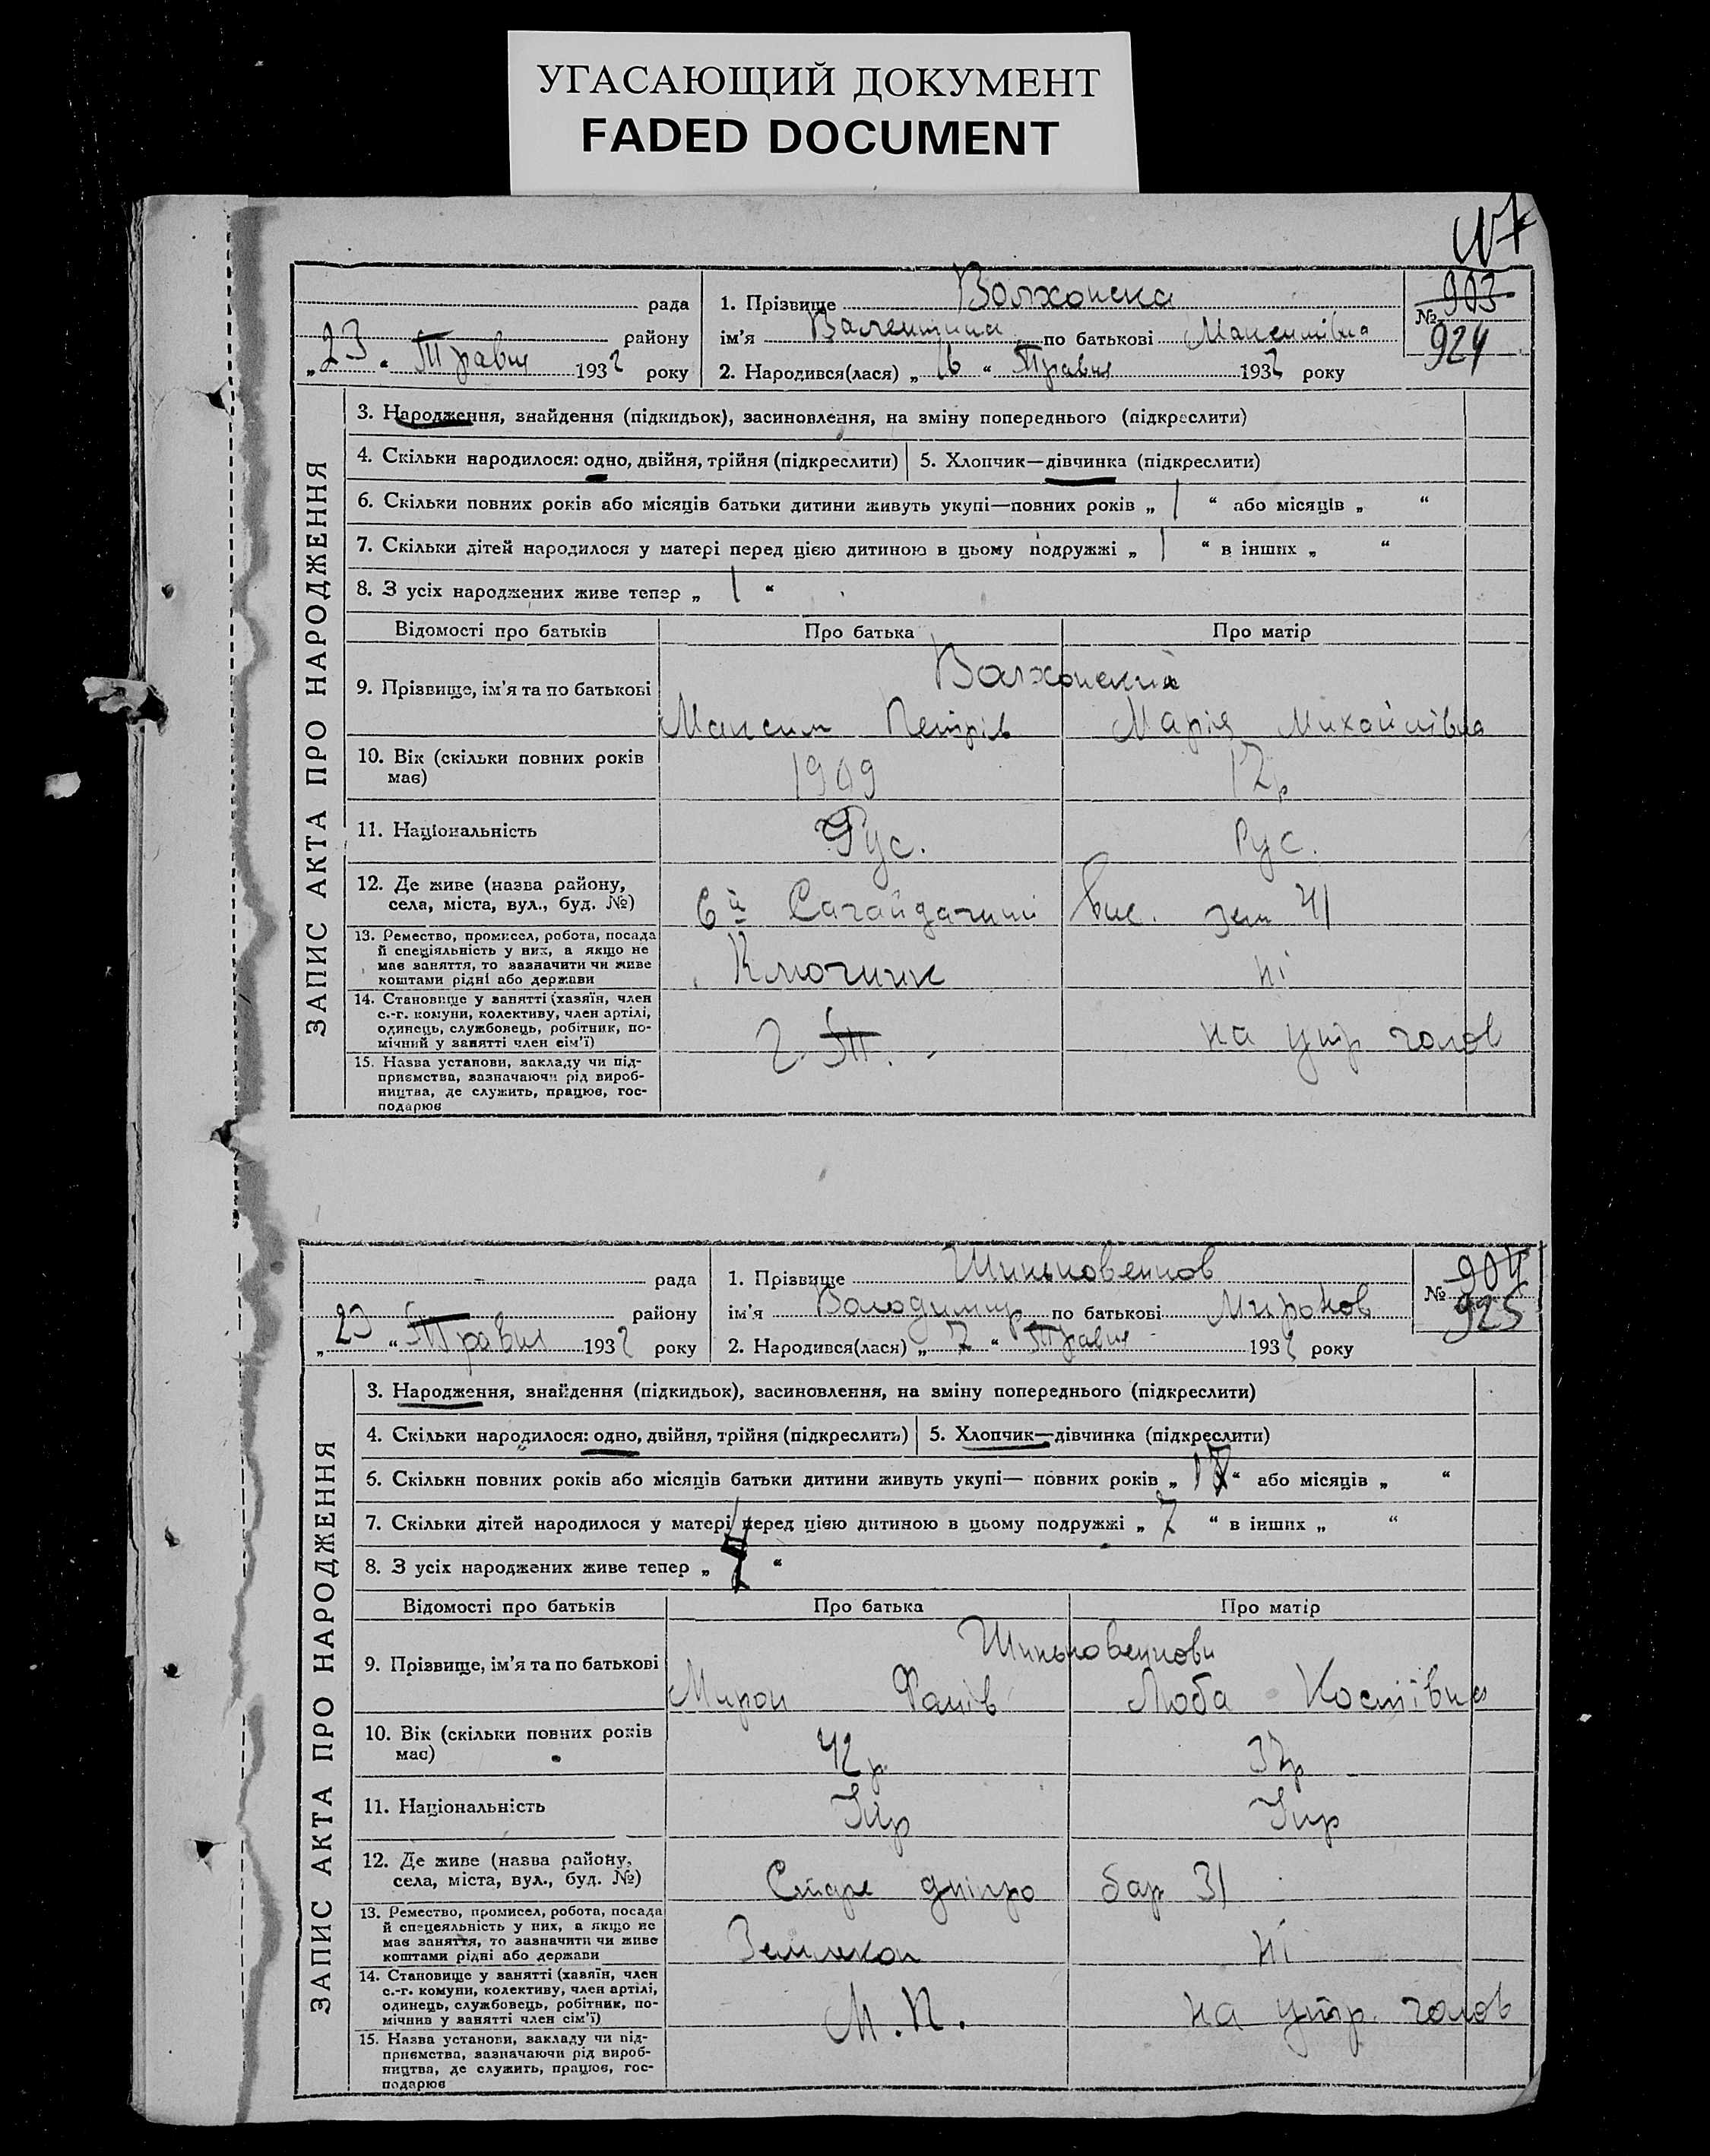 УГАСАЮЩИЙ ДОКУМЕНТ
FADED DOCUMENT
рада
району
„ 23 “ Травня 1932 року
1. Прізвище Волхонска
ім’я Валентина по батькові Максимівна
2. Народився(лася) „ 16 “ Травня 1932 року
№ 903
924
ЗАПИС АКТА ПРО НАРОДЖЕННЯ
3. Народження, знайдення (підкидьок), засиновлення, на зміну попереднього (підкреслити)
4. Скільки народилося: одно, двійня, трійня (підкреслити) 5. Хлопчик—дівчинка (підкреслити)
6. Скільки повних років або місяців батьки дитини живуть укупі—повних років „ 1 “ або місяців „ “
7. Скільки дітей народилося у матері перед цією дитиною в цьому подружжі „ 1 “ в інших „ “
8. З усіх народжених живе тепер „ 1 “
Відомості про батьків Про батька Про матір
9. Прізвище, ім’я та по батькові
Волхонский
Максим Петрів Марія Михайлівна
10. Вік (скільки повних років має) 1909
11. Національність Рус. Рус.
12. Де живе (назва району, села, міста, вул., буд. №) 6й Сагайдачний Вис. зем 41
13. Ремество, промисел, робота, посада й спеціяльність у них, а якщо не має заняття, то зазначити чи живе коштами рідні або держави Ключник ні
14. Становище у занятті (хазяїн, член с.-г. комуни, колективу, член артілі, одинець, службовець, робітник, помічний у занятті член сім’ї) на утр голов
15. Назва установи, закладу чи підприємства, зазначаючи рід виробництва, де служить, працює, господарює
рада
району
„ 23 “ Травня 1932 року
1. Прізвище
ім’я Володимир по батькові Миронов
2. Народився(лася) „ 7 “ Травня 1932 року
№ 904
925
ЗАПИС АКТА ПРО НАРОДЖЕННЯ
3. Народження, знайдення (підкидьок), засиновлення, на зміну попереднього (підкреслити)
4. Скільки народилося: одно, двійня, трійня (підкреслить) 5. Хлопчик—дівчинка (підкреслити)
6. Скільки повних років або місяців батьки дитини живуть укупі— повних років „ “ або місяців „ “
7. Скільки дітей народилося у матері перед цією дитиною в цьому подружжі „ 7 “ в інших „ “
8. З усіх народжених живе тепер „ “
Відомості про батьків Про батька Про матір
9. Прізвище, ім’я та по батькові
Мирон Люба Костівна
10. Вік (скільки повних років має) 42 р 37р
11. Національність Укр Укр
12. Де живе (назва району, села, міста, вул., буд. №) Старе дніпро бар 31
13. Ремество, промисел, робота, посада й спецеяльність у них, а якщо не має заняття, то зазначити чи живе коштами рідні або держави Землекоп ні
14. Становище у занятті (хазяїн, член с.-г. комуни, колективу, член артілі, одинець, службовець, робітник, помічнив у занятті член сім’ї) М.П. на утр. голов
15. Назва установи, закладу чи підприємства, зазначаючи рід виробництва, де служить, працює, господарює